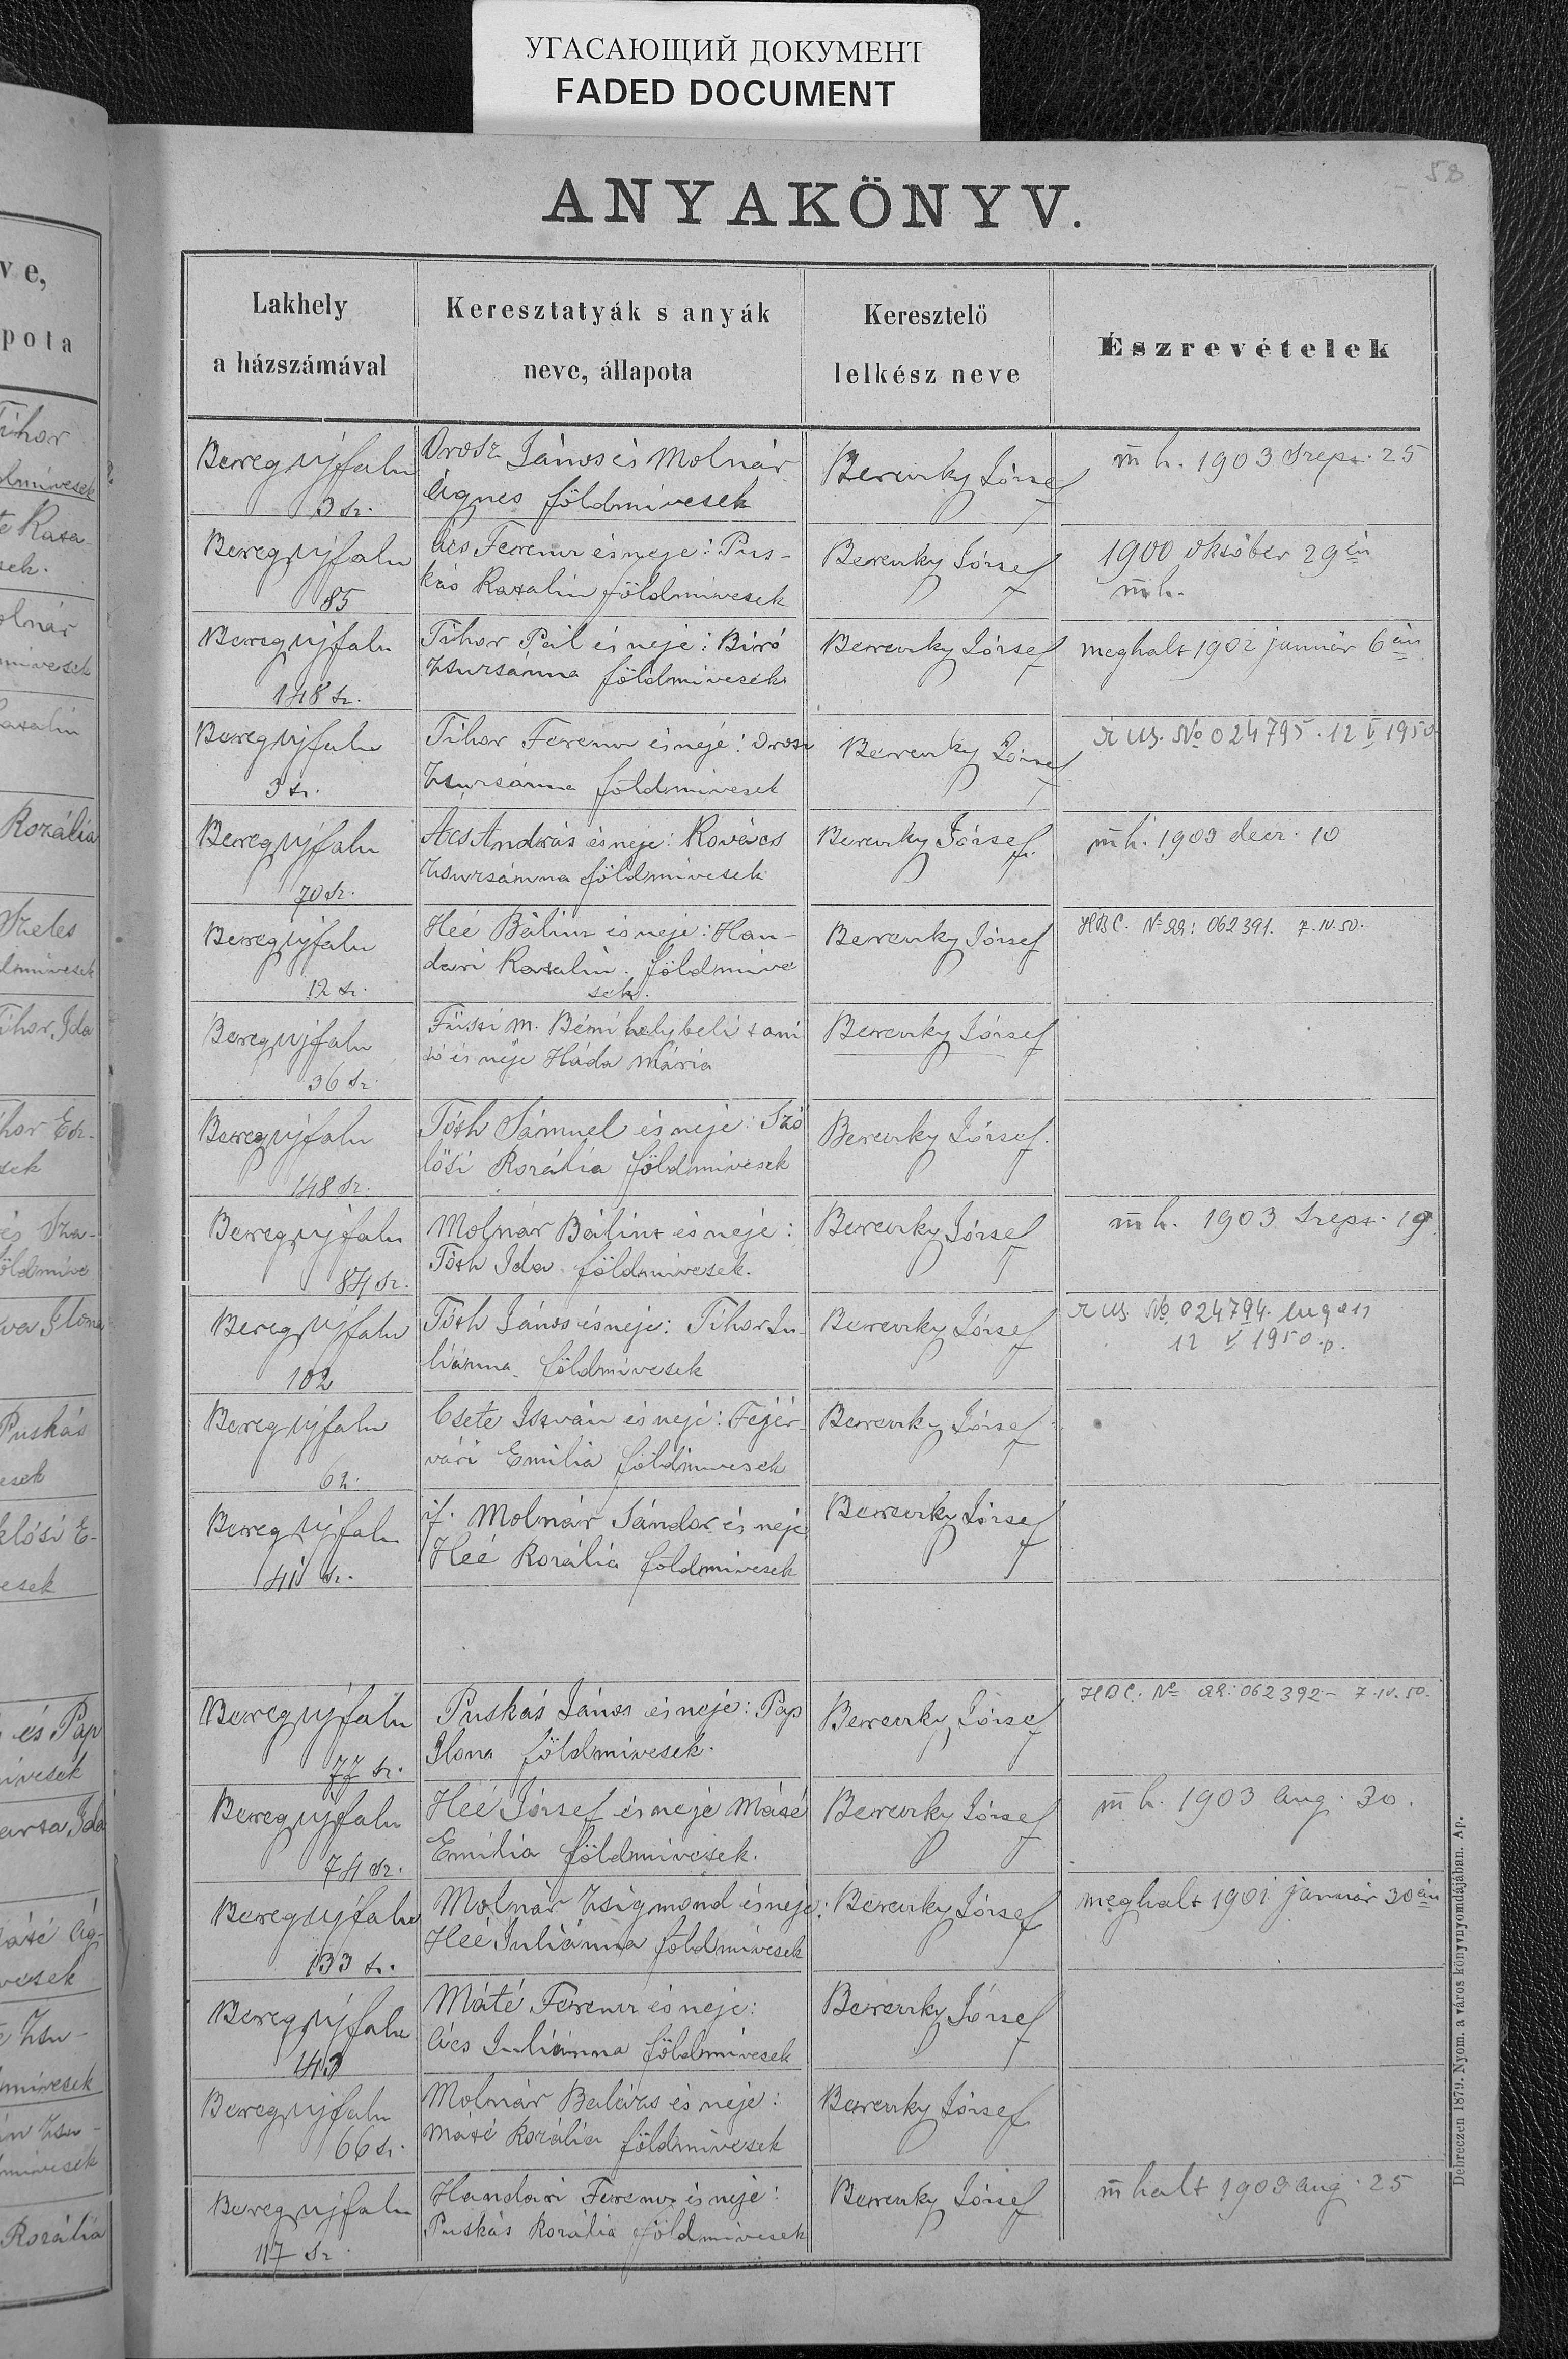 УГАСАЮЩИЙ ДОКУМЕНТ
FADED DOCUMENT
58
ANYAKÖNYV.
Lakhely
a házszámával
Keresztatyák s anyák
neve, állapota
Keresztelö
lelkész neve
Észrevételek
Beregujfalu
3 sz.
Orosz János és Molnár
Ágnes földmivesek
Bereczky József
m h. 1903 Szept. 25
Beregujfalu
85
Ács Ferencz és neje: Pus-
kás Katalin földmivesek
Bereczky József
1900 október 29én
m h.
Beregujfalu
148 sz.
Tihor Pál és neje: Biró
Zsuzsanna földmivesek
Bereczky József
meghalt 1902 január 6án
Beregujfalu
3 sz.
Tihor Ferencz és neje: Orosz
Zsuzsánna földmivesek
Bereczky József
№ 024795. 12 V 1950
Beregujfalu
70 sz.
Ács András és neje: Kovács
Zsuzsánna földmivesek
Bereczky József
m h. 1903 decz. 10
Beregujfalu
12 sz.
Heé Bálint és neje: Han-
dari Katalin. földmive
sek.
Bereczky József
062391. 7.IV.50.
Beregujfalu
36 sz.
Füssi M. Béni helybeli tani
tó és neje Háda Mária
Bereczky József
Beregujfalu
148 sz.
Tóth Sámuel és neje: Szö
lősi Rozália földmivesek
Bereczky József.
Beregujfalu
84 sz.
Molnár Bálint és neje:
Tóth Ida földmivesek.
Bereczky József
m h. 1903 Szept. 19
Beregujfalu
102
Tóth János és neje: Tihor Ju-
liánna földmivesek
Bereczky József
№ 024794.
12 V 1950 р.
Beregujfalu
62.
Csete István és neje: Fejér-
vári Emilia földmivesek
Bereczky József
Beregujfalu
41 sz.
if. Molnár Sándor és neje
Heé Rozália földmivesek
Bereczky József
Beregujfalu
77 sz.
Puskás János és neje: Pap
Ilona földmivesek.
Bereczky József
062392 - 7.IV.50.
Beregujfalu
74 sz.
Heé József és neje Máté
Emilia földmivesek.
Bereczky József
m h. 1903 aug. 30.
Beregujfalu
133 sz.
Molnár Zsigmond és neje:
Heé Juliánna földmivesek
Bereczky József
meghalt 1901 január 30án
Beregujfalu
143
Máté Ferencz és neje:
Ács Juliánna földmivesek
Bereczky József
Beregujfalu
66 sz.
Molnár Balázs és neje:
Máté Rozália földmivesek
Bereczky József
Beregujfalu
117 sz
Handari Ferencz és neje:
Puskás Rozália földmivesek
Bereczky József
m halt 1903 aug. 25
Debreczen 1879. Nyom. a város könyvnyomdájában. Ap.